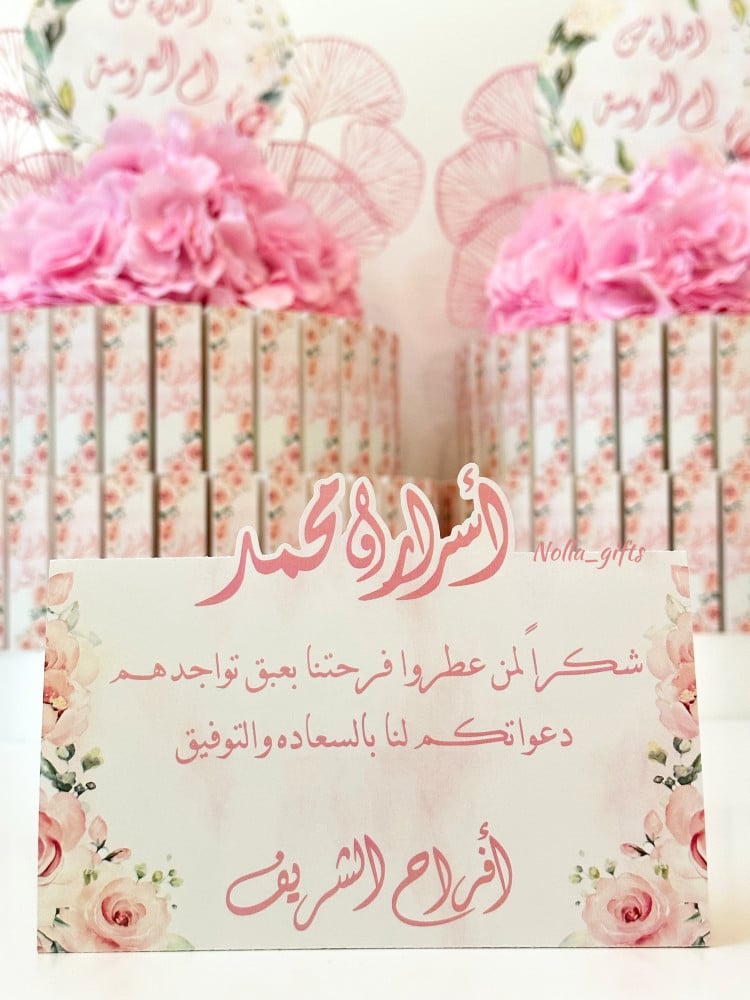 إهداء من
أم العروسة
إهداء من
أم العروسة
أسرار & محمد
Nolla_gifts
شكراً لمن عطروا فرحتنا بعبق تواجدهم
دعواتكم لنا بالسعاده والتوفيق
أفراح الشريف